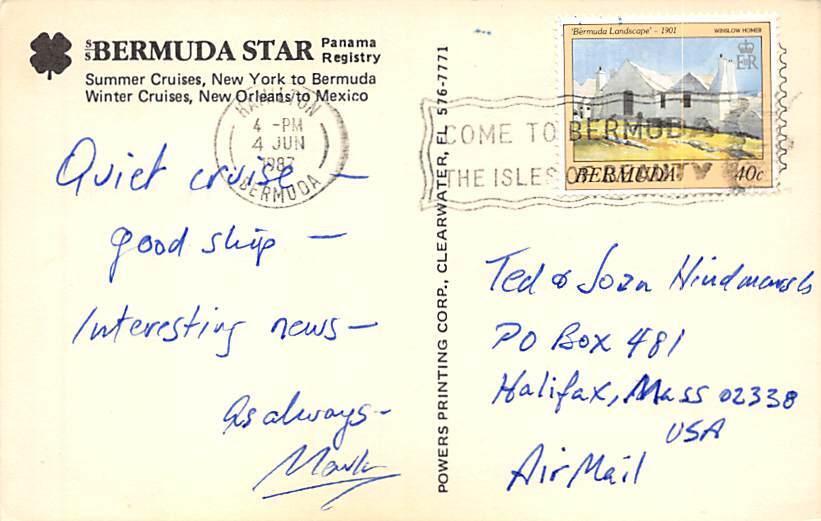 S/S BERMUDA STAR Panama Registry
Summer Cruises, New York to Bermuda
Winter Cruises, New Orleans to Mexico
HAMILTON
4 -PM
4 JUN
1987
BERMUDA
Quiet cruise —
good ship —
Interesting news —
As always -
Mark
POWERS PRINTING CORP., CLEARWATER, FL 576-7771
'Bermuda Landscape' - 1901 WINSLOW HOMER
E II R
BERMUDA 40c
COME TO BERMUDA
THE ISLES OF BEAUTY
Ted & Joan Hindmarsh
PO Box 481
Halifax, Mass 02338
USA
Air Mail